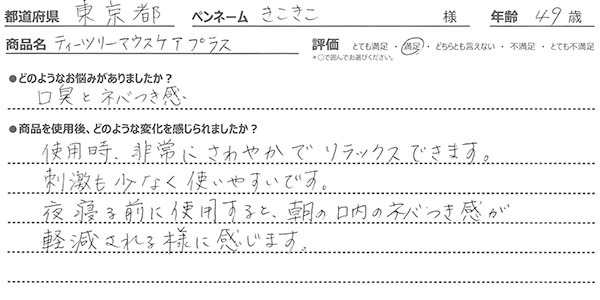 都道府県 東京都 ペンネーム きこきこ 様 年齢 49 歳
商品名 ティーツリーマウスケアプラス 評価 とても満足 ・ 満足 ・ どちらとも言えない ・ 不満足 ・ とても不満足
*○で囲んでお選びください。
●どのようなお悩みがありましたか？
口臭とネバつき感
●商品を使用後、どのような変化を感じられましたか？
使用時、非常にさわやかでリラックスできます。
刺激も少なく使いやすいです。
夜寝る前に使用すると、朝の口内のネバつき感が
軽減される様に感じます。